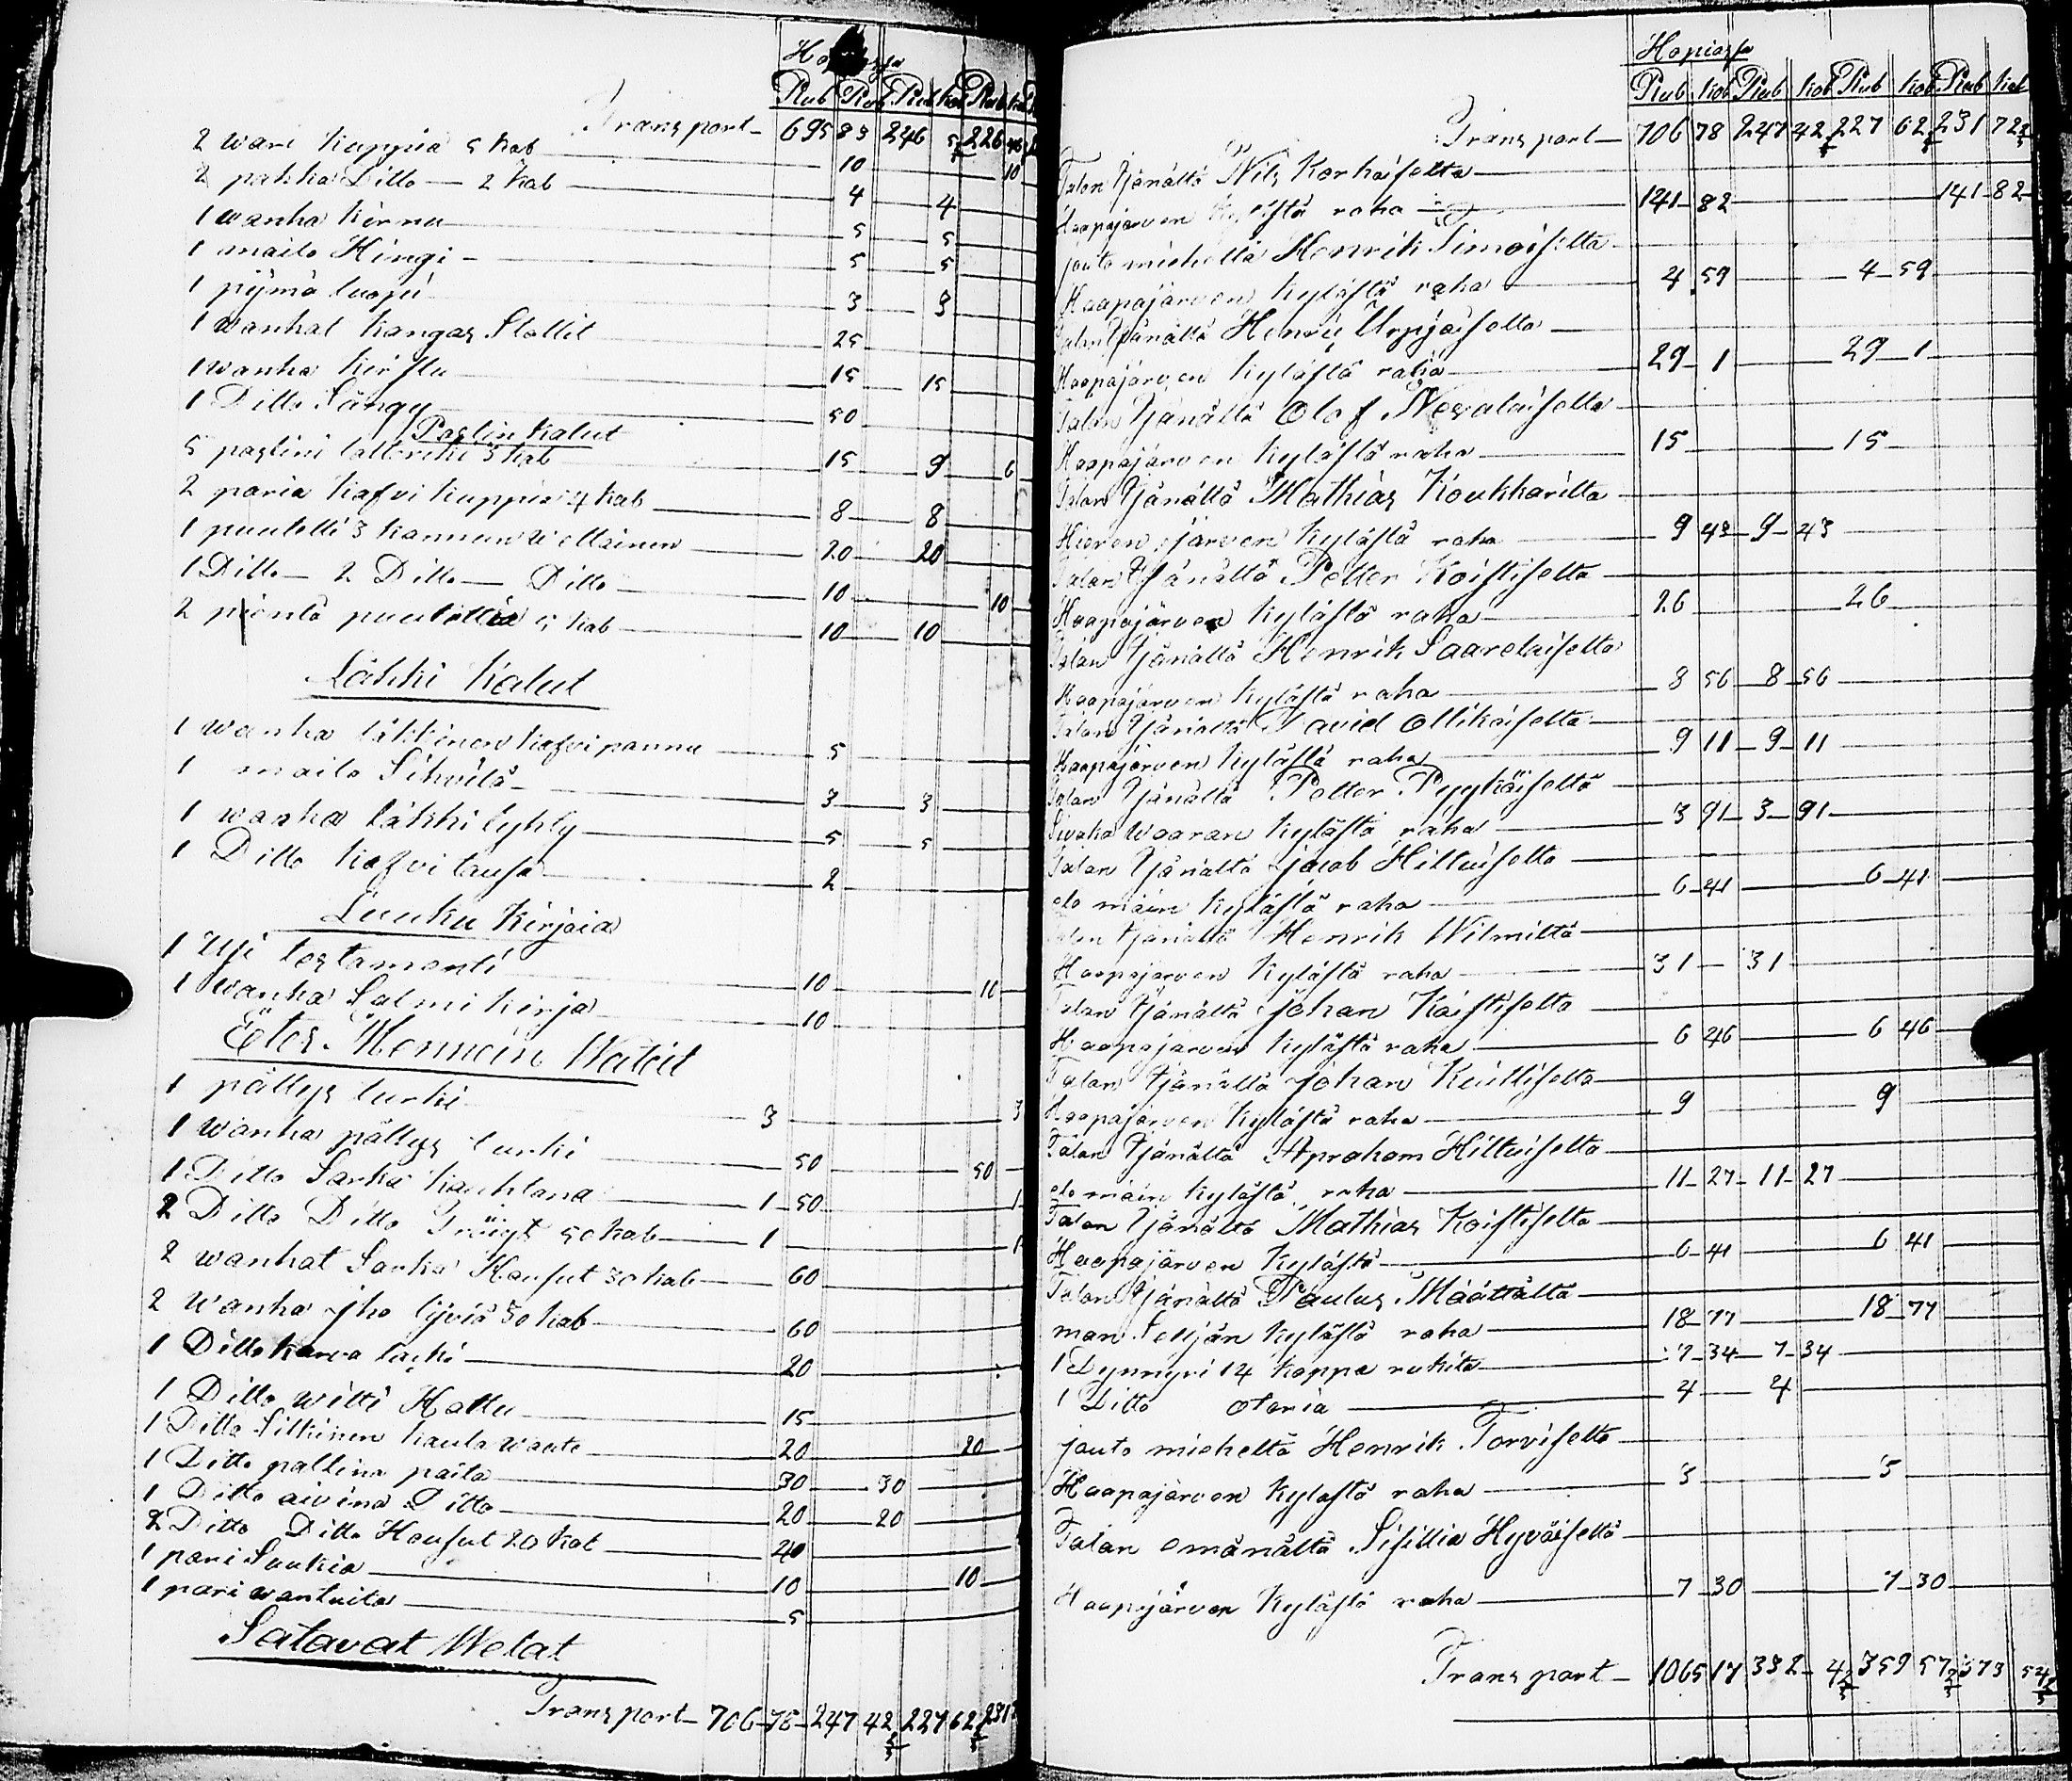 Rub Kob Rub Kob Rub
Transport 695 83 246 226
2 wari kuppia 5 kob 10 10
2 pahka Ditto 2 kob 4 4
1 wanha kirnu 5 5
1 maito Hingi 5 5
1 pijmä 3 3
1 wanhat kangas Stollit 25
1 wanha kirstu 15 15
1 Ditto Sängy 50
Poslin kalut
5 poslini talleriki 3 kob 15 9 6
2 paria kafvi kuppia 4 kob 8 8
1 puutelli 3 kannun wettäinen 20 20
1 Ditto 2 Ditto Ditto 10 10
2 pientä puutellia 5 kob 10 10
Läkki kalut
1 wanha läkkinen kafvi pannu 5
1 maito Sihvilä 3 3
1 wanha läkki lyhty 5 5
1 Ditto kafvi 2
Luuku kirjaia
1 Usi testamenti 10 10
1 wanha Salmi kirja 10
Eles Mennein Watteit
1 pällys turki 3 3
1 wanha pällys turki 50 50
1 Ditto Sarka kauhtana 1 50 1
2 Ditto Ditto Tröijyt 50 kob 1 1
2 wanhat Sarka Housut 30 kob 60
2 wanha jho lijviä 30 kob 60
1 Ditto karva lacki 20
1 Ditto witti Hattu 15
1 Ditto Silkinen kaula waate 20 20
1 Ditto paltina paita 30 30
1 Ditto aivina Ditto 20 20
2 Ditto Ditto Housut 20 kob 40
1 pari Sukia 10 10
1 pari wantuita 5
Satavat Welat
Transport 706 78 247 42 2/5 227 62 2/5 231
Hopiassa
Rub kob Rub kob Rub kob Rub kob
Transport 706 78 247 42 2/5 227 62 2/5 231 72 2/5
Talon Ysänältä Nils Korhoiselta
Haapajärven kylästä raha 141 82 141 82
jouto mieheltä Henrik Timoiselta
Haapajärven kylästä raha 4 59 4 59
Talon Ysänältä Henric Urpjoiselta
Haapajärven kylästä raha 29 1 29 1
Talon Ysänältä Olof Nevalaiselta
Haapajärven kylästä raha 15 15
Talon Ysänältä Mathias Koukkarilta
Hieron järven kylästä raha 9 43 9 43
Talon Ysänältä Petter Koistiselta
Haapajärven kylästä raha 26 26
Talon Ysänältä Henrik Saarelaiselta
Haapajärven kylästä raha 8 56 8 56
Talon Ysänältä David Ollikaiselta
Haapajärven kylästä raha 9 11 9 11
Talon Ysänältä Petter Pyykäiseltä
Sivaka waaran kylästä raha 3 91 3 91
Talon Ysänältä jacob Hiltuiselta
elo mäin kylästä raha 6 41 6 41
Talon Ysänältä Henrik Wilmiltä
Haapajärven kylästä raha 31 31
Talon Ysänältä johan Koistiselta
Haapajärven kylästä raha 6 46 6 46
Talon Ysänältä johan Keuttiselta
Haapajärven kylästä raha 9 9
Talon Ysänältä Apraham Hiltuiselta
elo mäin kylästä raha 11 27 11 27
Talon Ysänältä Mathias Koistiselta
Haapajärven kylästä 6 41 6 41
Talon Ysänältä Paulus Määttältä
man Selljän kylästä raha 18 77 18 77
1 Tynnyri 14 kappa rukita 7 34 7 34
1 Ditto otaria 4 4
jouto mieheltä Henrik Torviselta
Haapajärven kylästä raha 3 3
Talon emänältä Sisillia Hyväiseltä
Haapajärven kylästä raha 7 30 7 30
Transport 1065 17 332 4 2/5 359 57 2/5 373 54 2/5